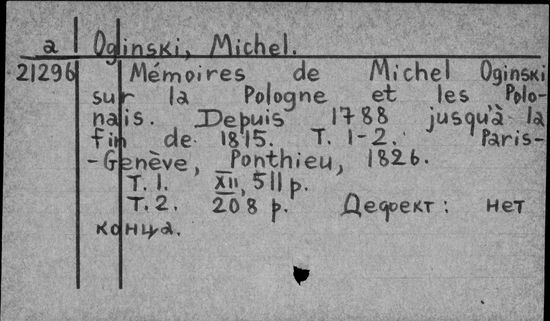 a Oginski, Michel.
21296 Mémoires de Michel Oginski
sur la Pologne et les Polo-
nais. Depuis 1788 jusqu'à la
fin de 1815. T. 1-2. Paris-
-Genève, Ponthieu, 1826.
T. 1. XII, 511 p.
T. 2. 208 p. Дефект: нет
конца.